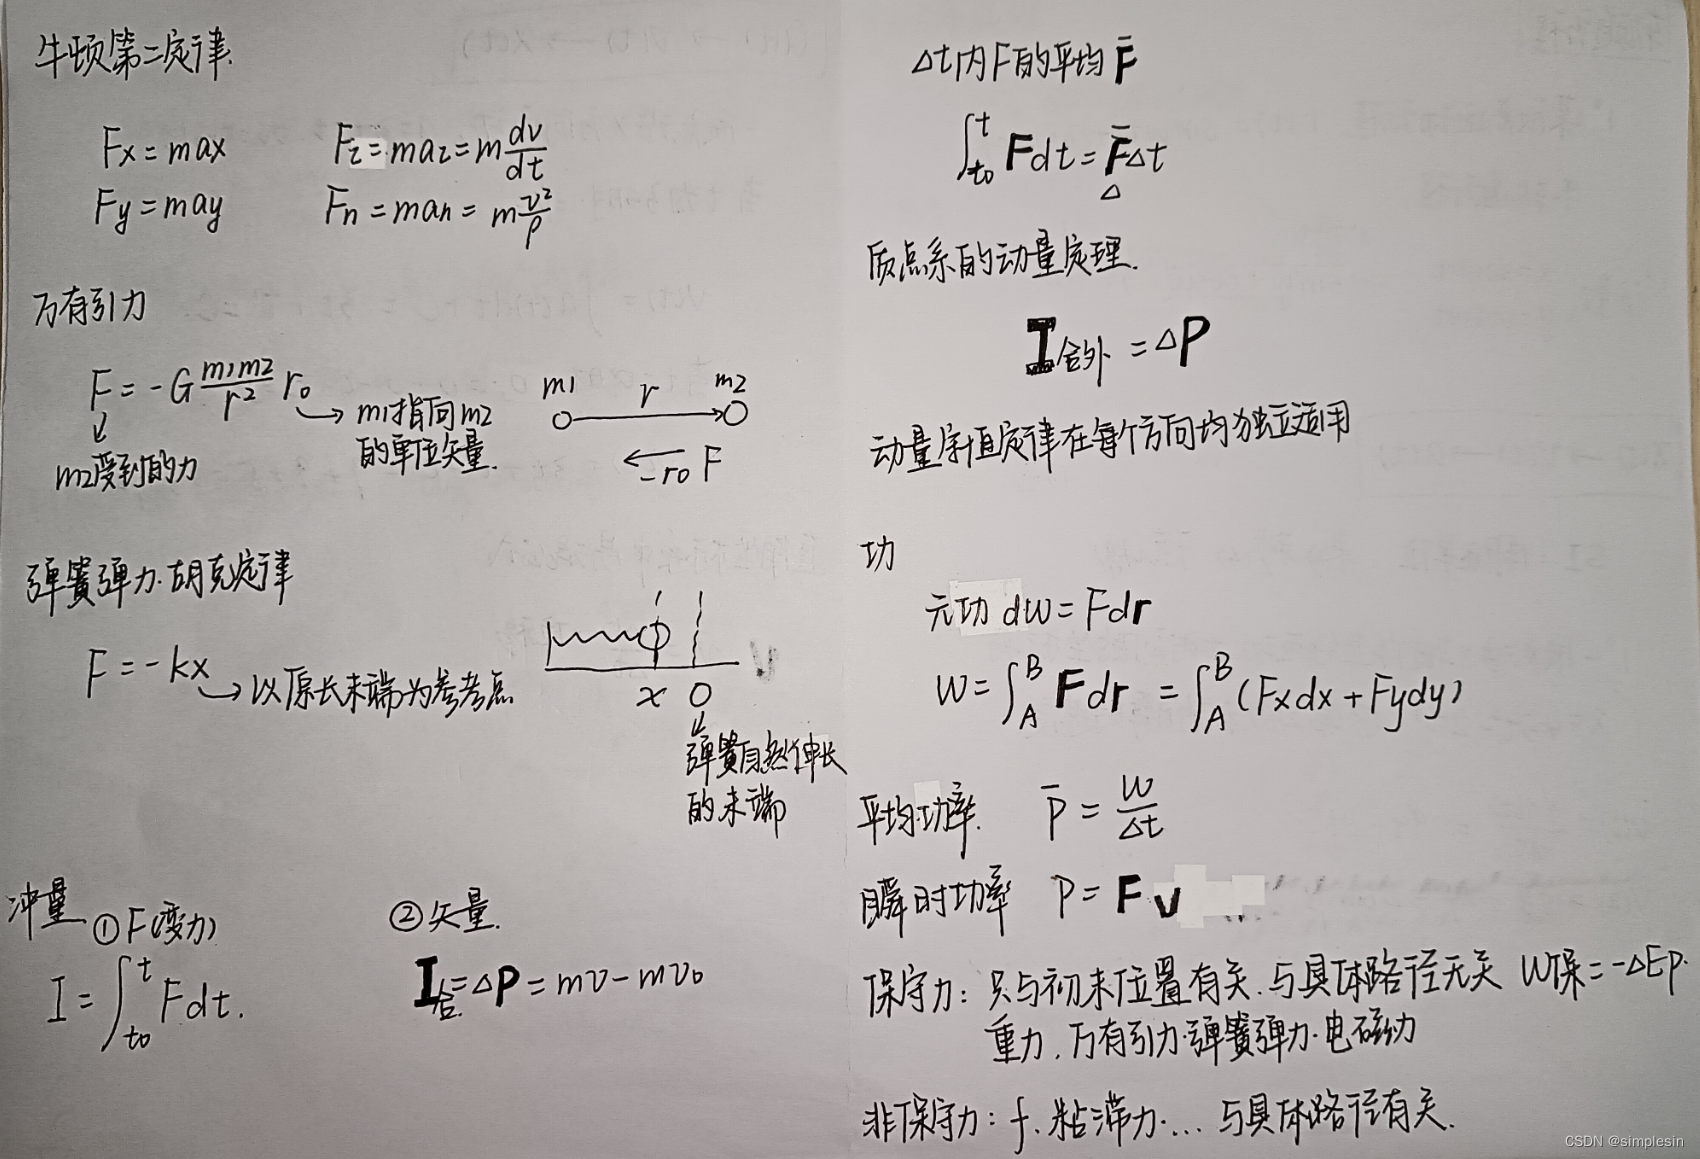 牛顿第二定律.
Fx=max  Fz=maz=m dv/dt
Fy=may  Fn=man=m v²/ρ
万有引力
F=-G m1m2/r² r0
m1指向m2
的单位矢量.
m2受到的力
m1  r  m2
-r0 F
弹簧弹力·胡克定律
F=-kx
以原长末端为参考点
x  0
弹簧自然伸长
的末端
冲量
①F(变力)  ②矢量.
I=∫t0^t Fdt.  I合=ΔP=mv-mv0
Δt内F的平均F̄
∫t0^t Fdt=F̄Δt
Δ
质点系的动量定理.
I合外=ΔP
动量守恒定律在每个方向均独立适用
功
元功 dW=Fdr
W=∫A^B Fdr=∫A^B(Fxdx+Fydy)
平均功率. P̄=W/Δt
瞬时功率 P=F·v
保守力: 只与初末位置有关.与具体路径无关 W保=-ΔEp.
重力.万有引力·弹簧弹力·电磁力
非保守力: f.粘滞力.... 与具体路径有关.
CSDN @simplesin